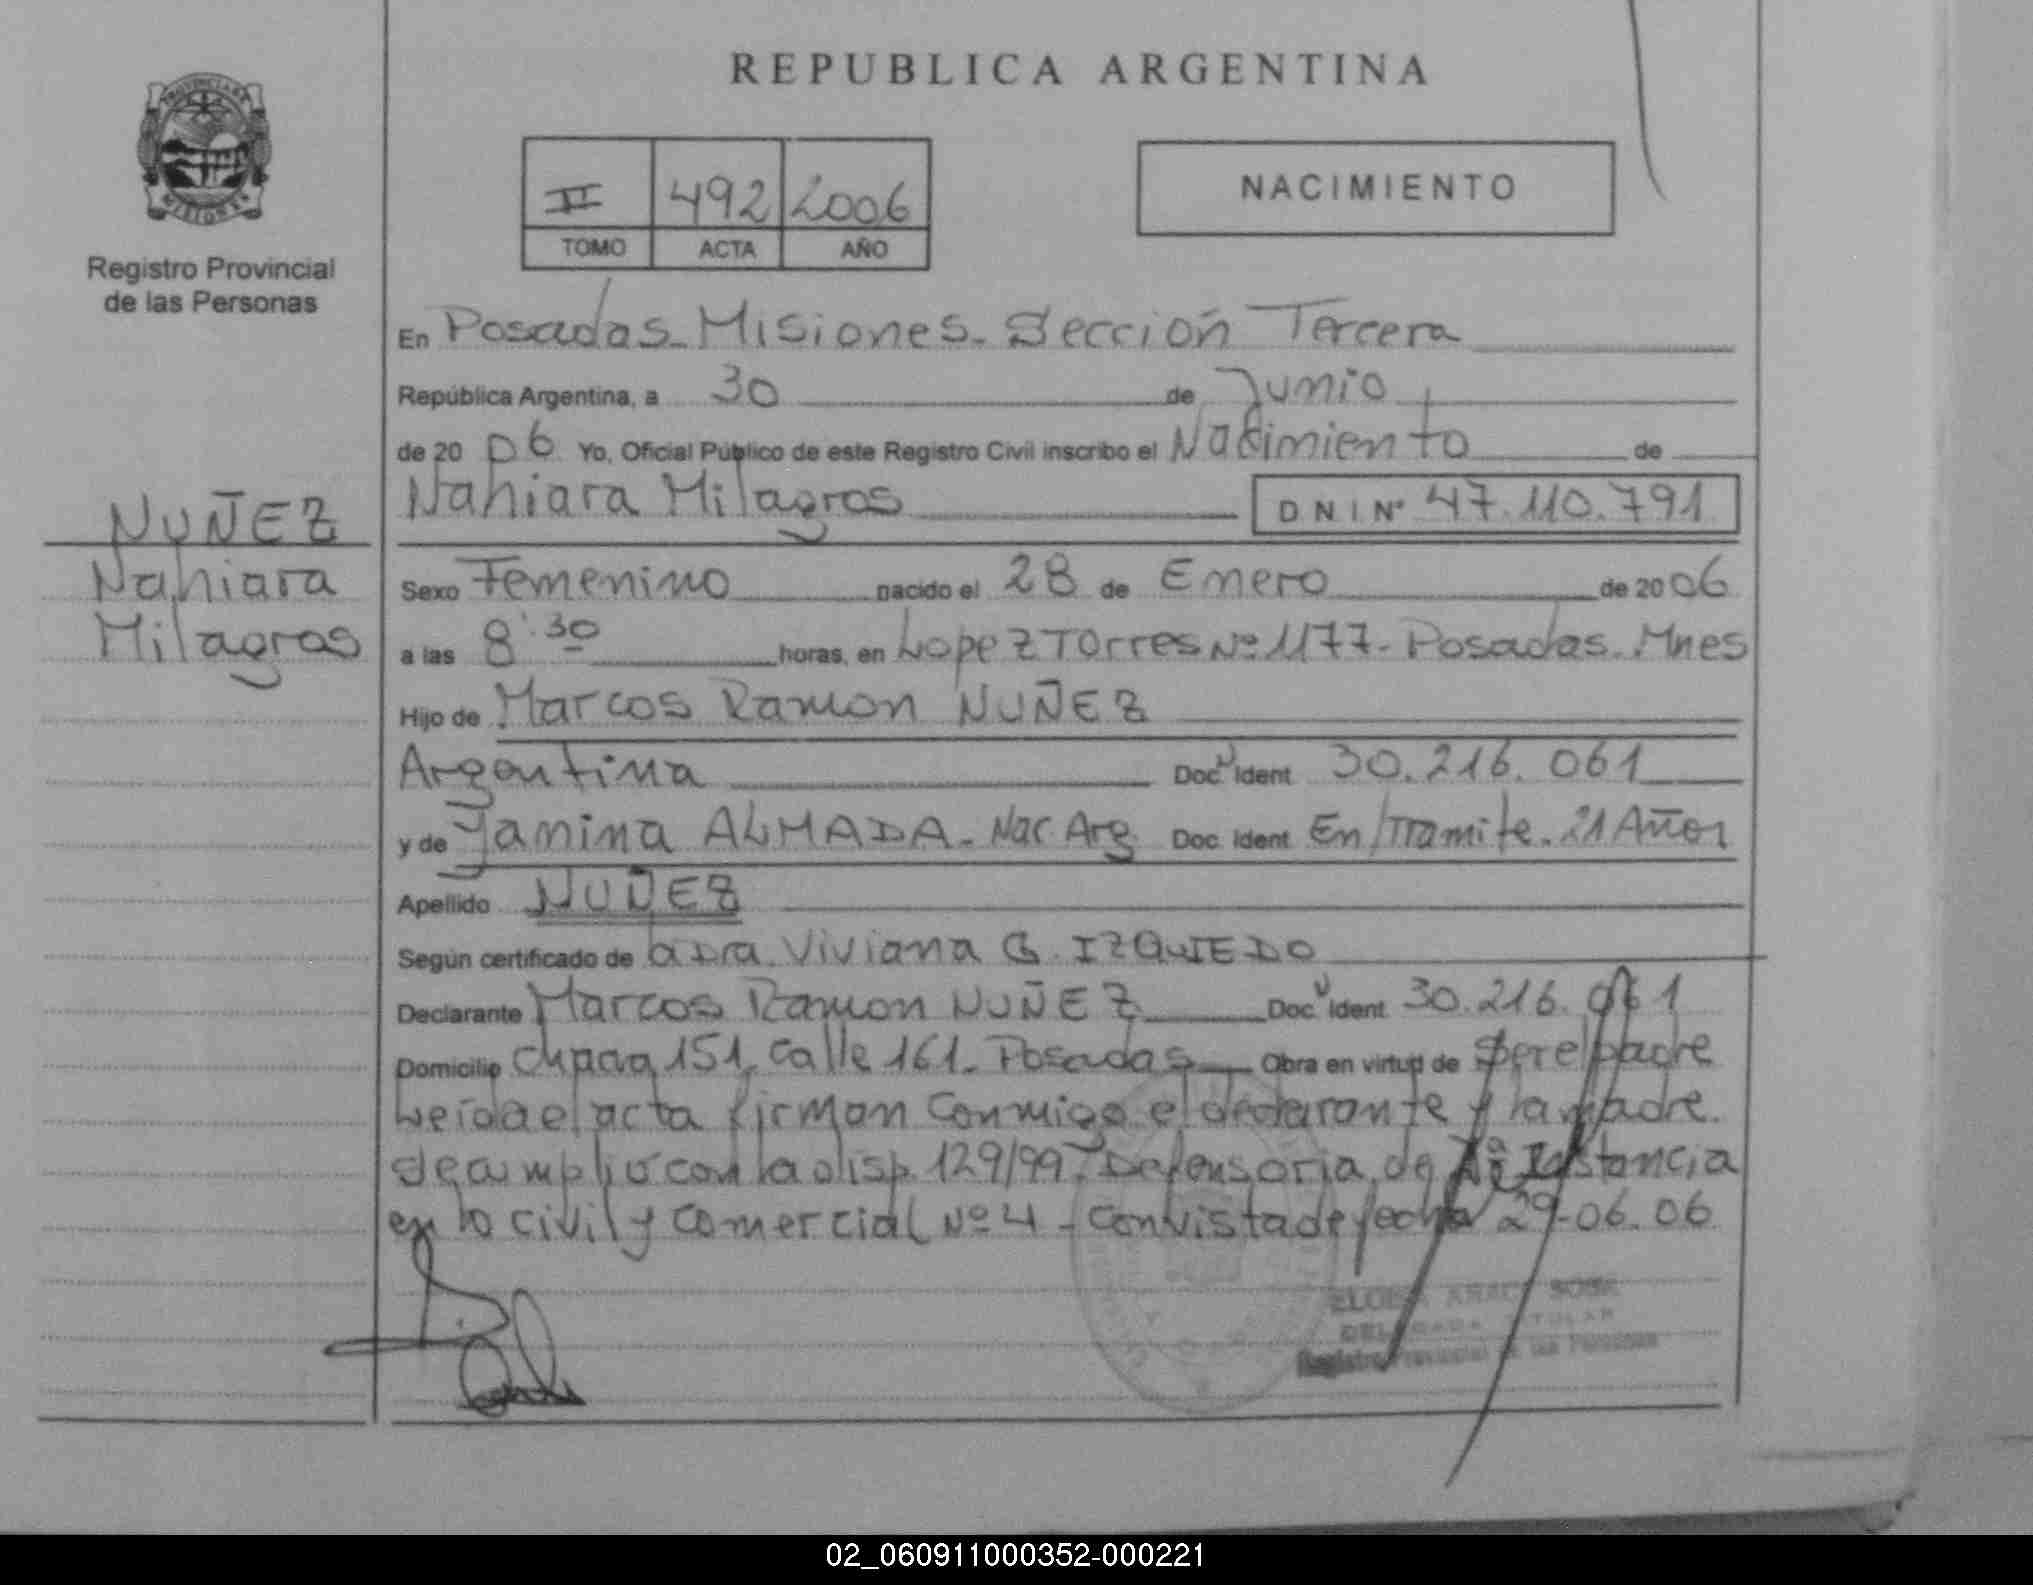 REPUBLICA ARGENTINA
PROVINCIA DE
MISIONES
Registro Provincial
de las Personas
II 492 2006
TOMO ACTA AÑO
NACIMIENTO
NUÑEZ
Nahiara
Milagros
En Posadas - Misiones - Sección Tercera
República Argentina, a 30 de Junio
de 20 06 Yo, Oficial Público de este Registro Civil inscribo el Nacimiento de
Nahiara Milagros DNI Nº 47.110.791
Sexo Femenino nacido el 28 de Enero de 20 06
a las 8:30 horas, en Lopez Torres Nº 1177 - Posadas - Mnes
Hijo de Marcos Ramon NUÑEZ
Argentina Doc. Ident 30.216.061
y de Yanina ALMADA - Nac. Arg. Doc. Ident En Tramite - 21 Años
Apellido NUÑEZ
Según certificado de la Dra. Viviana G. IZQUIEDO
Declarante Marcos Ramon NUÑEZ Doc. Ident 30.216.061
Domicilio Chacra 151, Calle 161 - Posadas Obra en virtud de Ser el padre
Leída el acta firman conmigo el declarante y la madre.
Se cumplió con la disp. 129/99. Defensoria de 1ª Instancia
en lo civil y comercial Nº 4 - Con vista de fecha 29-06-06
DELEGADA TITULAR
Registro Provincial de las Personas
02_060911000352-000221